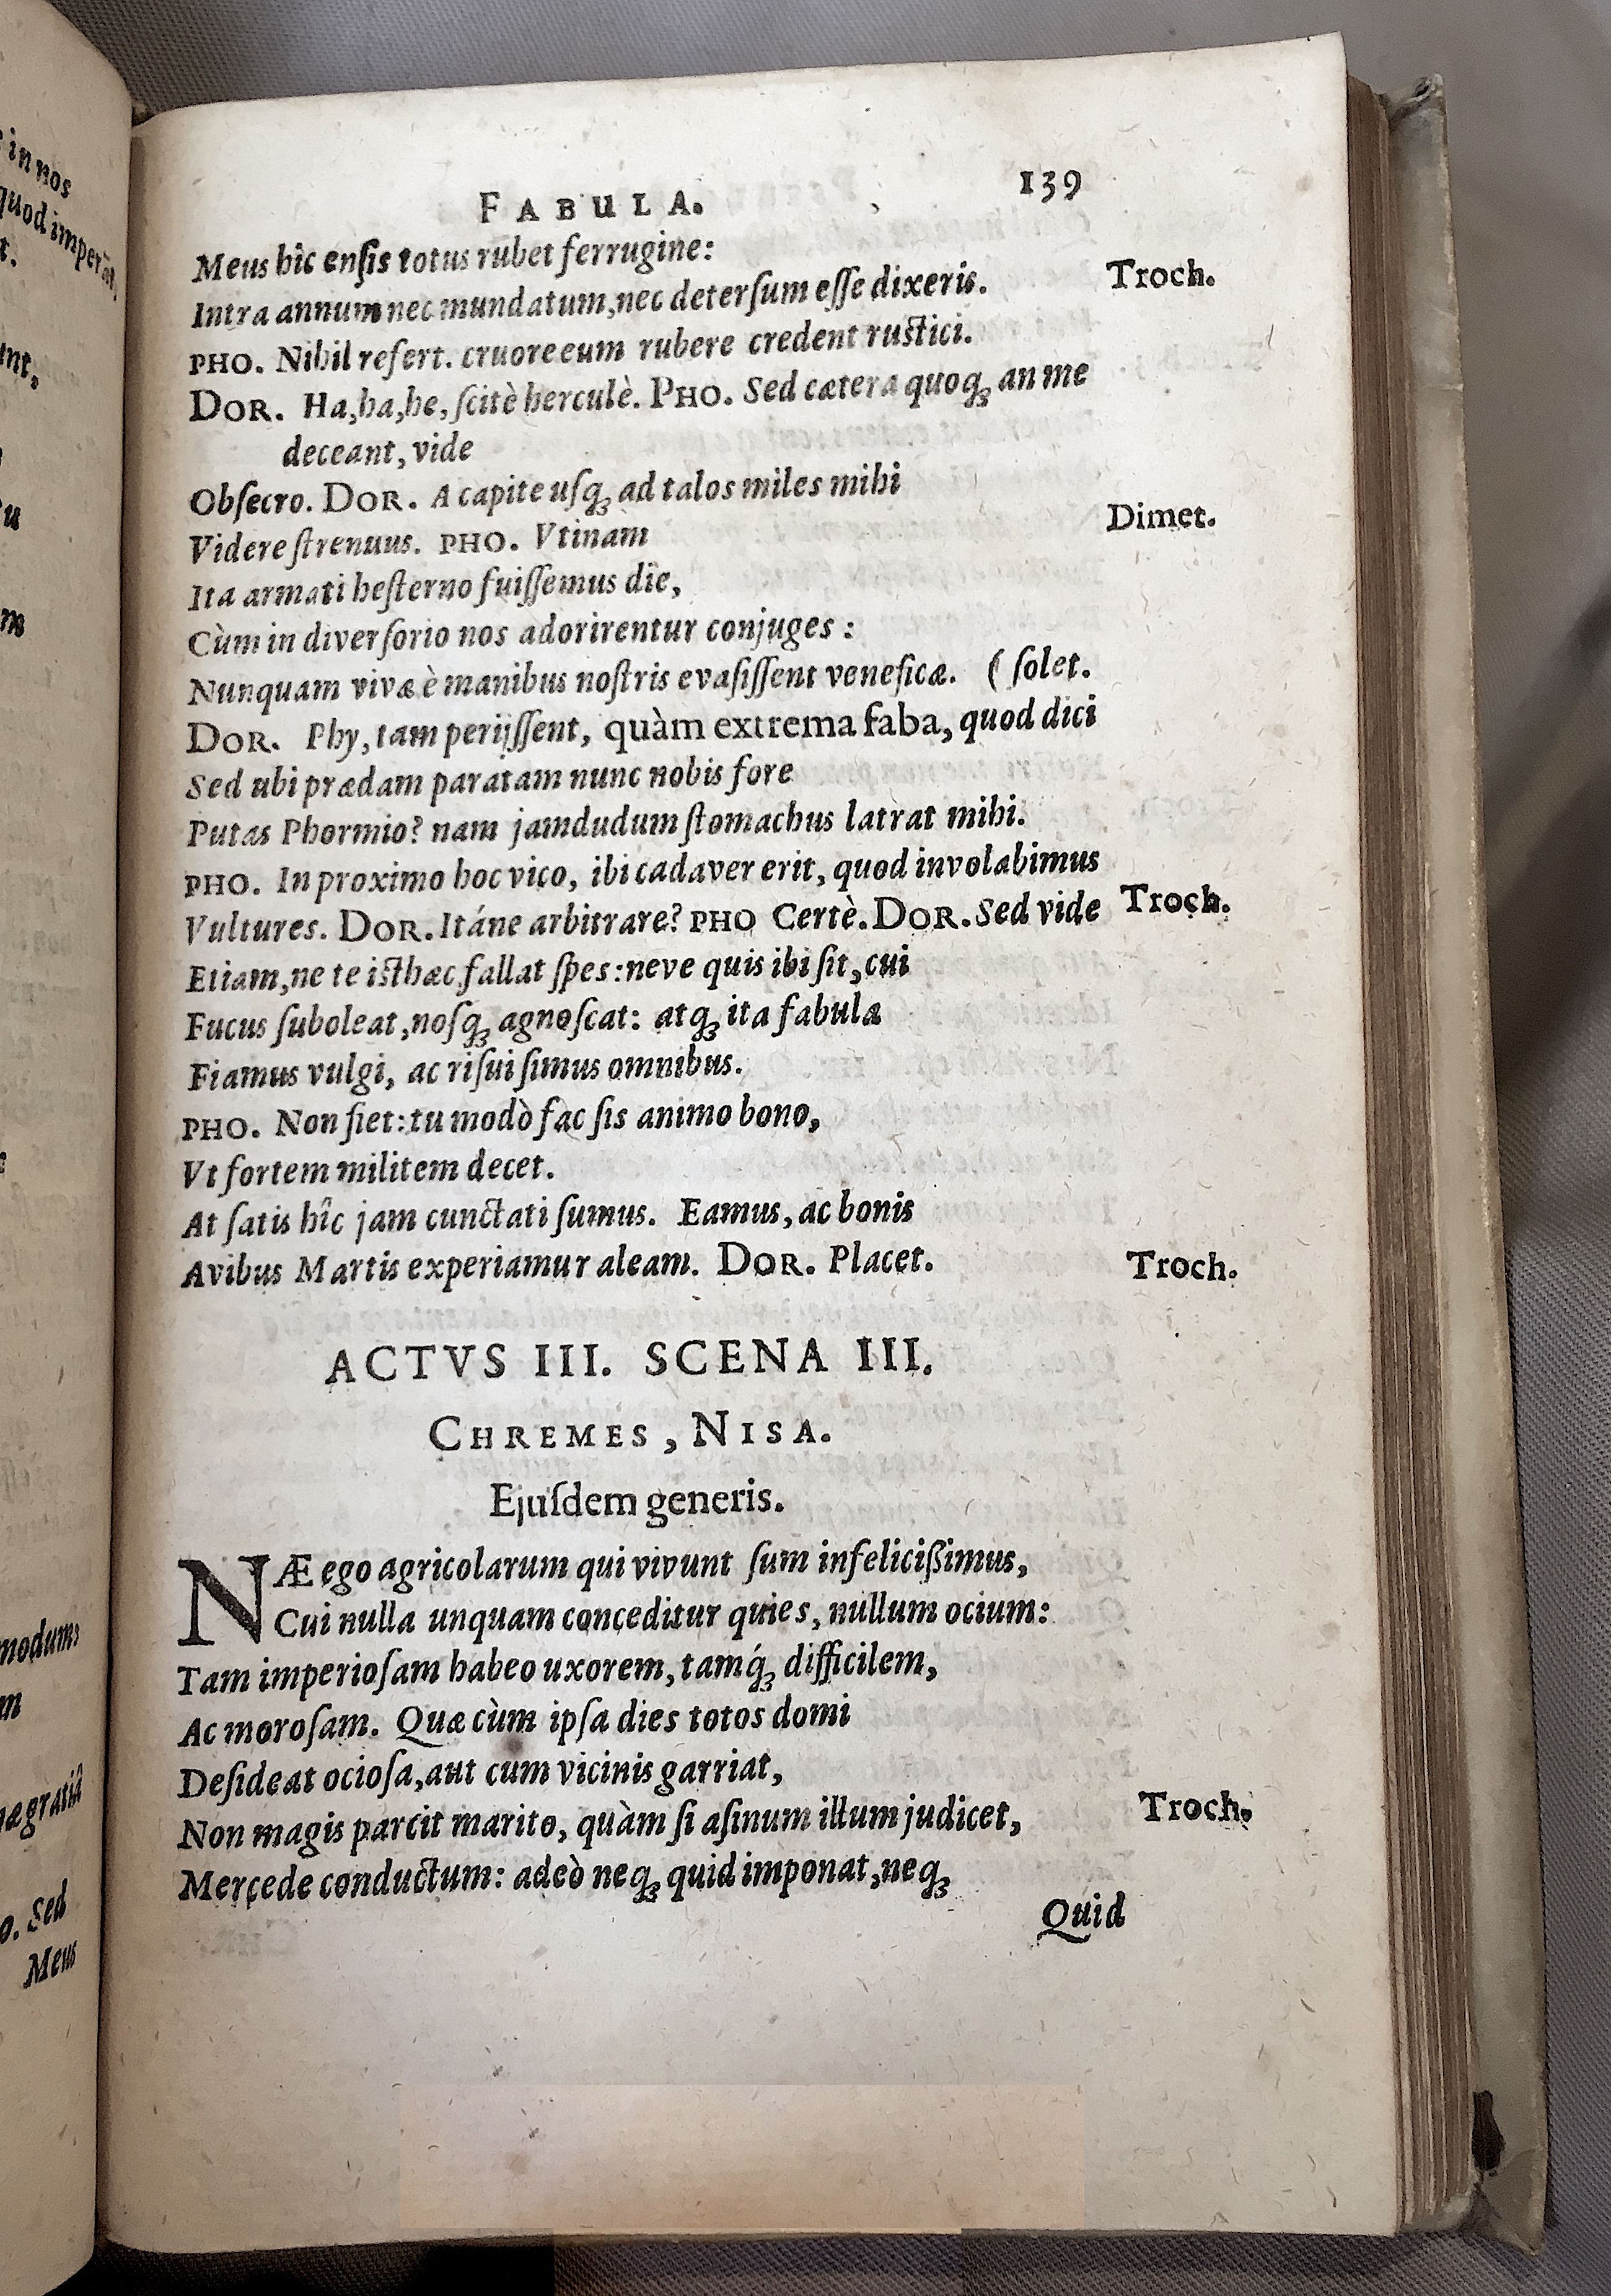 FABULA. 139
Meus hîc ensis totus rubet ferrugine:
Intra annum nec mundatum, nec detersum esse dixeris. Troch.
PHO. Nihil refert. cruore eum rubere credent rustici.
DOR. Ha, ha, he, scitè herculè. PHO. Sed cætera quoq; an me
deceant, vide
Obsecro. DOR. A capite usq; ad talos miles mihi
Videre strenuus. PHO. Vtinam Dimet.
Ita armati hesterno fuissemus die,
Cùm in diversorio nos adorirentur conjuges:
Nunquam vivæ è manibus nostris evasissent veneficæ. (solet.
DOR. Phy, tam perijssent, quàm extrema faba, quod dici
Sed ubi prædam paratam nunc nobis fore
Putas Phormio? nam jamdudum stomachus latrat mihi.
PHO. In proximo hoc vico, ibi cadaver erit, quod involabimus
Vultures. DOR. Itáne arbitrare? PHO Certè. DOR. Sed vide Troch.
Etiam, ne te isthæc fallat spes: neve quis ibi sit, cui
Fucus suboleat, nosq; agnoscat: atq; ita fabula
Fiamus vulgi, ac risui simus omnibus.
PHO. Non fiet: tu modò fac sis animo bono,
Vt fortem militem decet.
At satis hîc jam cunctati sumus. Eamus, ac bonis
Avibus Martis experiamur aleam. DOR. Placet. Troch.
ACTVS III. SCENA III.
CHREMES, NISA.
Ejusdem generis.
NÆ ego agricolarum qui vivunt sum infelicißimus,
Cui nulla unquam conceditur quies, nullum ocium:
Tam imperiosam habeo uxorem, tamq́; difficilem,
Ac morosam. Quæ cùm ipsa dies totos domi
Desideat ociosa, aut cum vicinis garriat,
Non magis parcit marito, quàm si asinum illum judicet, Troch.
Mercede conductum: adeò neq; quid imponat, neq;
Quid